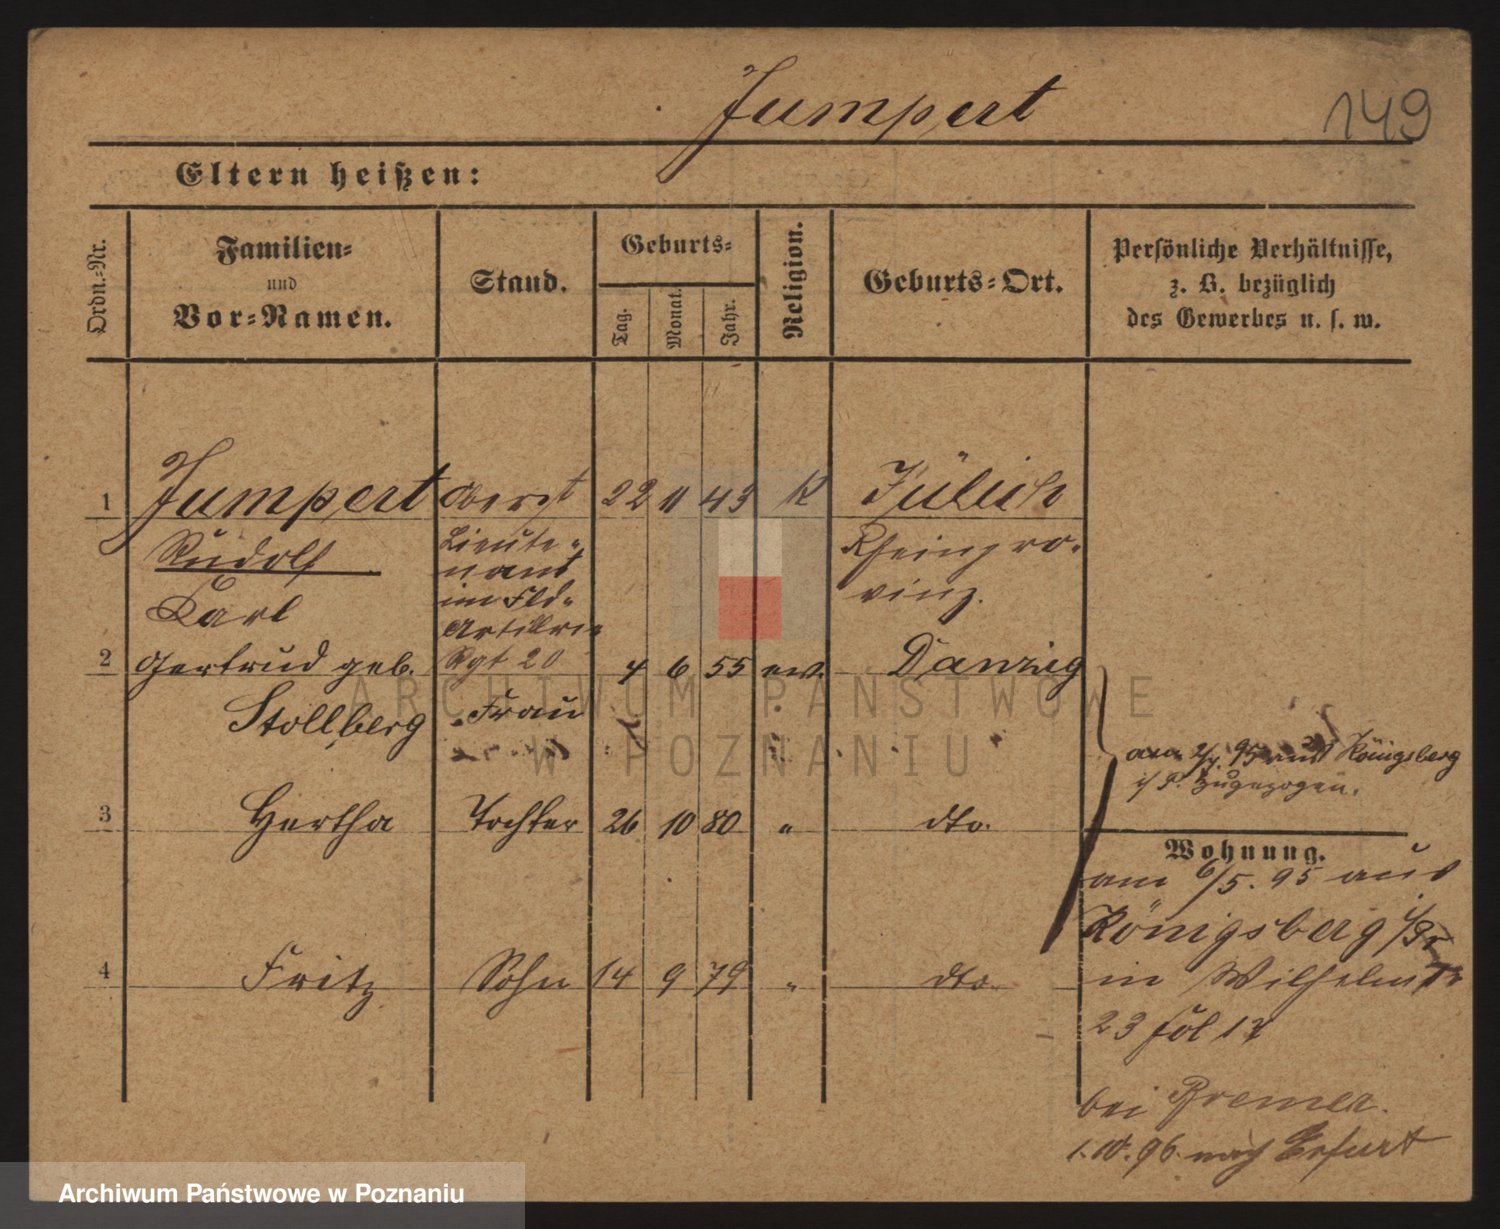 Jumpert
149
Eltern heißen:
Ordn.-Nr.
Familien-
und
Vor-Namen.
Stand.
Geburts-
Tag.
Monat.
Jahr.
Religion.
Geburts-Ort.
Persönliche Verhältnisse,
z. B. bezüglich
des Gewerbes u. s. w.
1 Jumpert Oberst 22 11 43 K Jülich
Rudolf Lieute- Rheinpro-
nant
Carl im Fld- vinz.
Artillrie
2 Gertrud geb. Rgt 20 4 6 55 ev. Danzig
Stollberg Frau
am 95 aus Königsberg
i/P. zugezogen.
3 Hertha Tochter 26 10 80 " dto.
Wohnung.
am 6/5. 95 aus
Königsberg i/Pr
4 Fritz Sohn 14 9 79 " dto.
in Wilhelmstr
23
bei Bremer.
1.10.96 nach Erfurt
ARCHIWUM PAŃSTWOWE
W POZNANIU
Archiwum Państwowe w Poznaniu